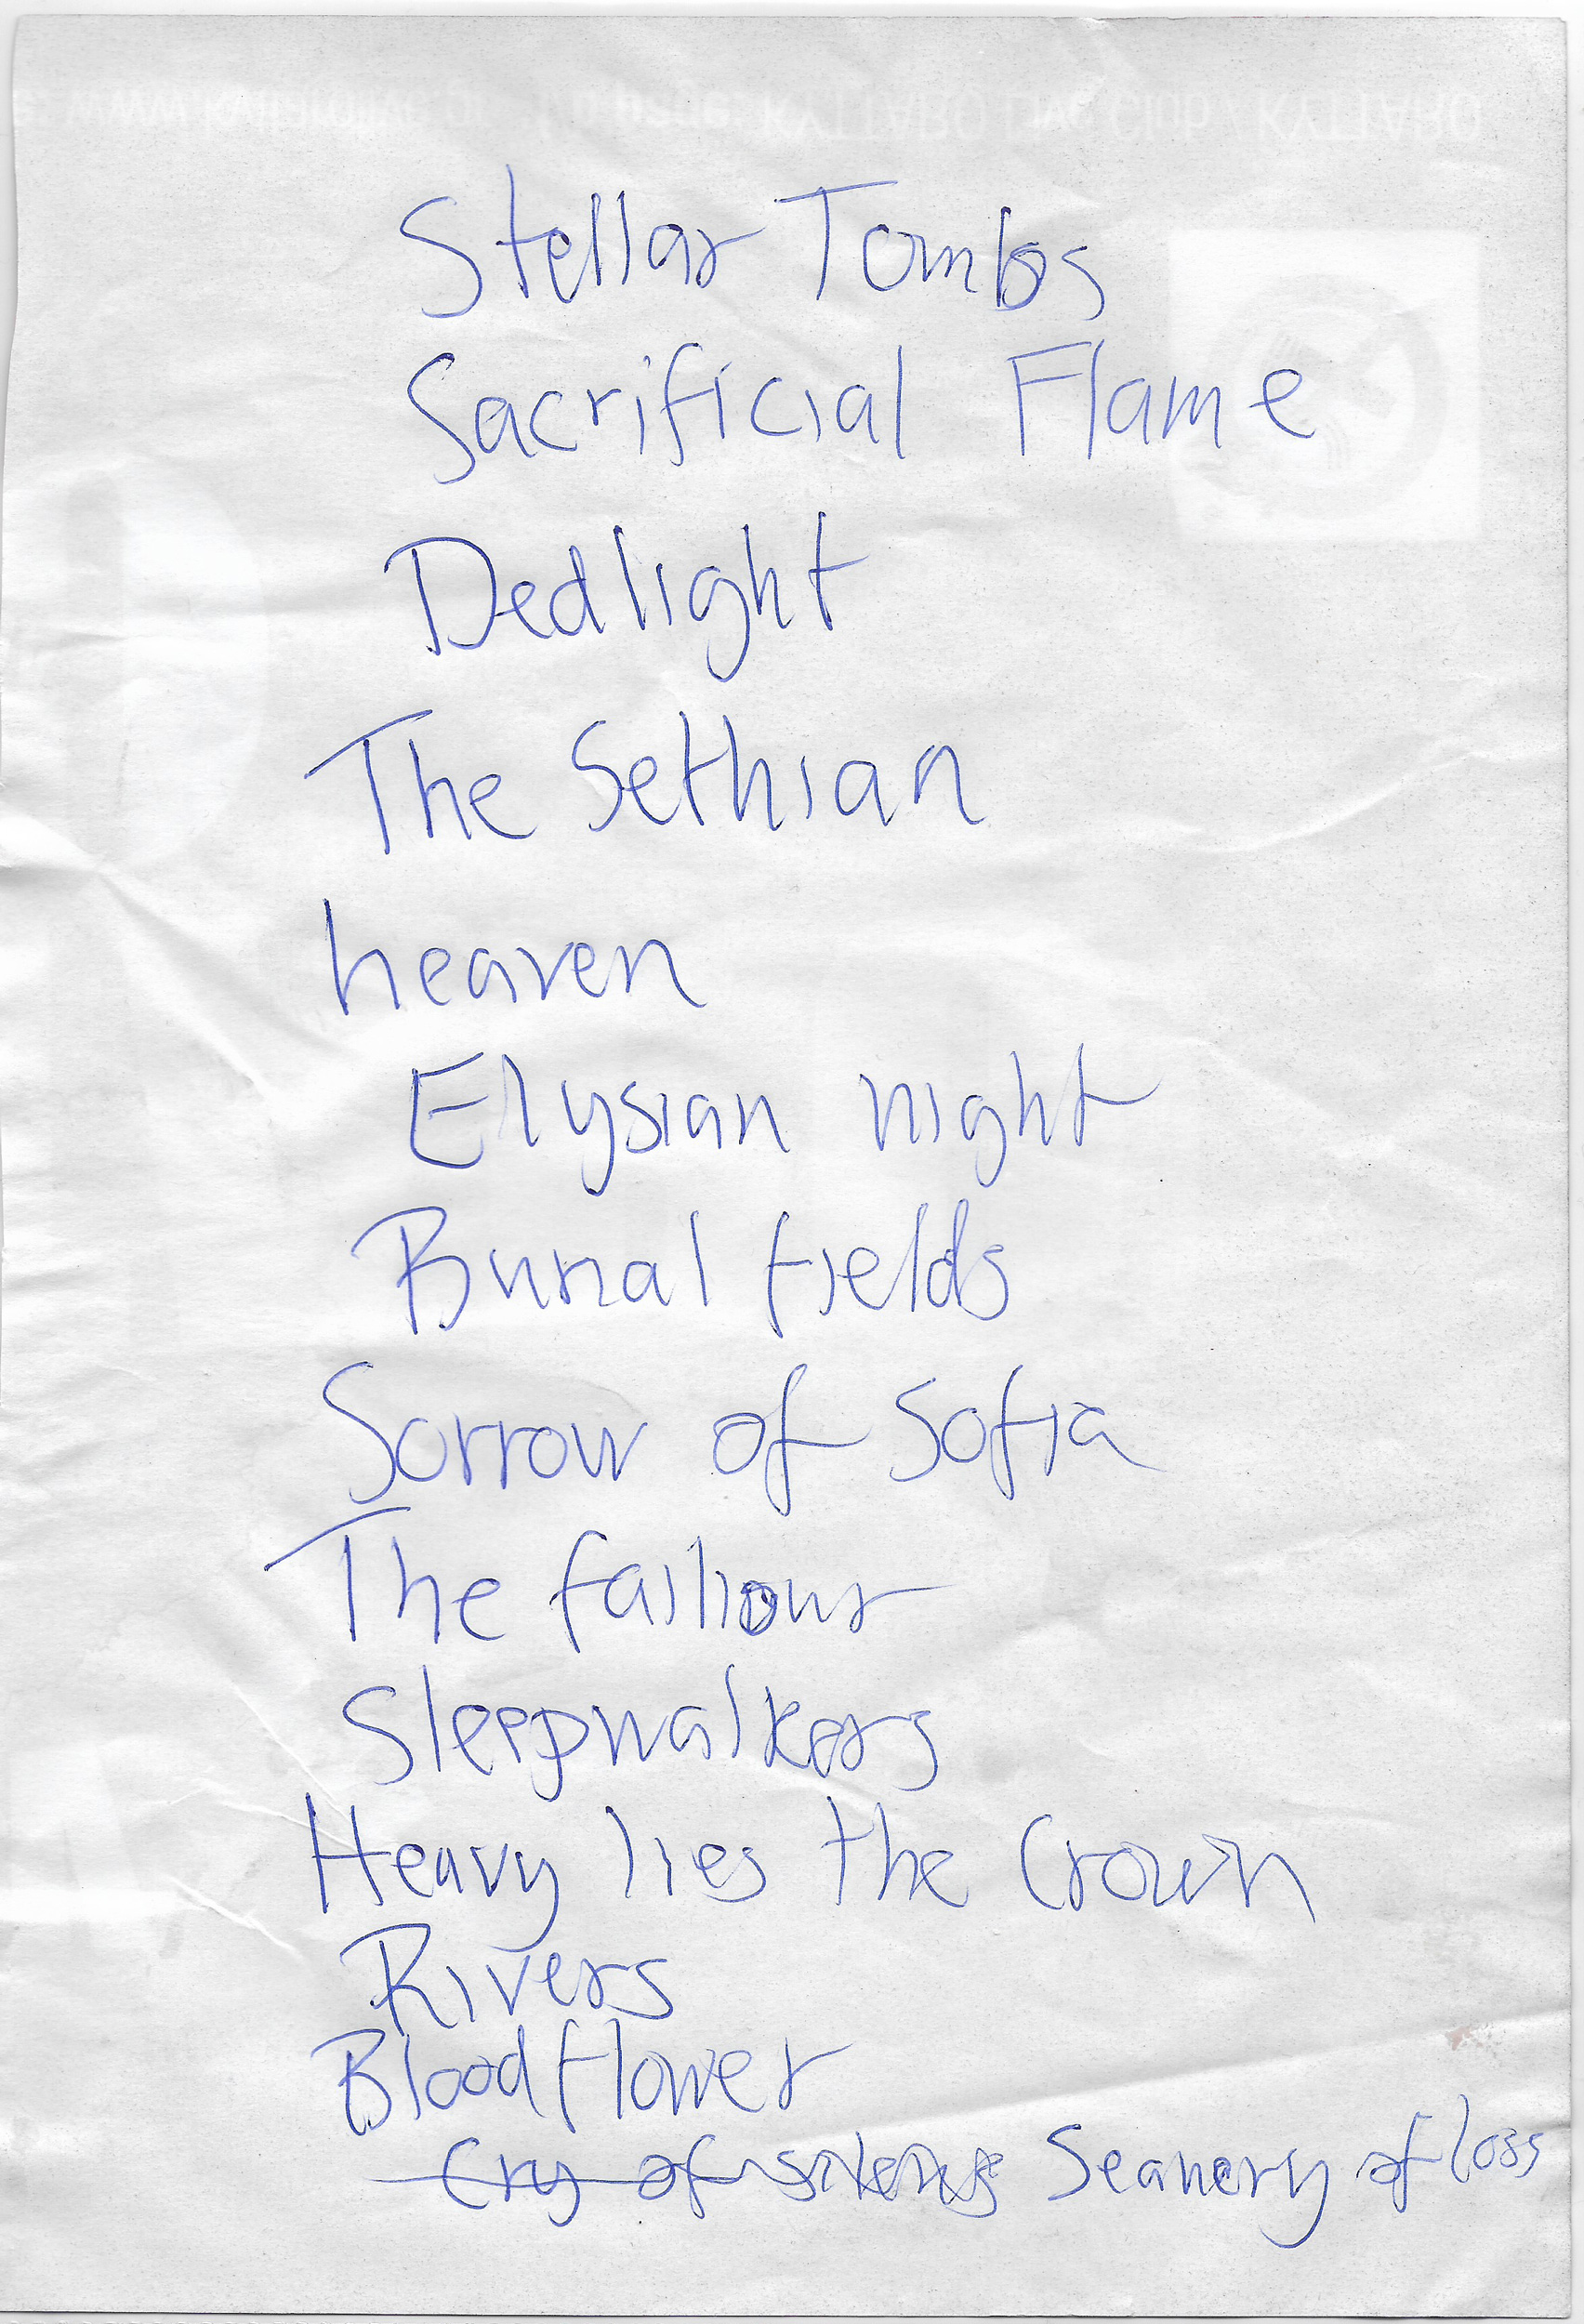 KYTTARO Live Club / KYTTARO
Stellar Tombs
Sacrificial Flame
Dedlight
The Sethian
heaven
Elysian night
Burial fields
Sorrow of Sofia
The failiour
Sleepwalkers
Heavy lies the Crown
Rivers
Bloodflower
Cry of Seanery of loss